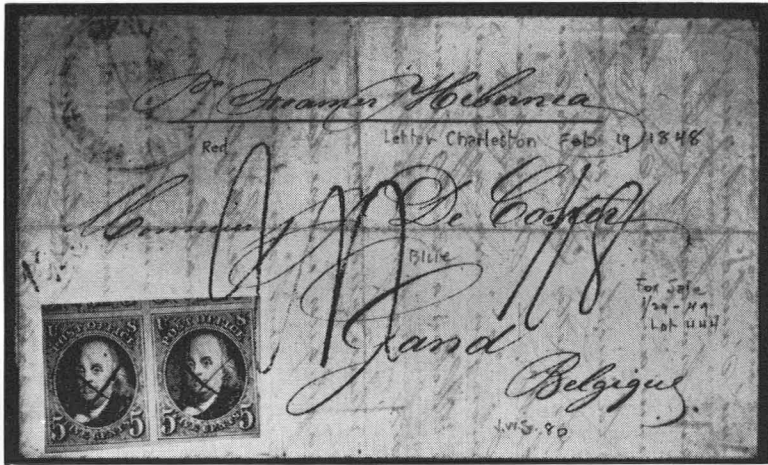 FEB
Pr Steamer Hibernia
Red
Letter Charleston Feb 19 1848
Monsieur De Coster
Blue
For Sale
1/29-49
Lot 444
Gand
Belgique
J.W.S. 80
U S U S
POST OFFICE POST OFFICE
5 FIVE CENTS 5 5 FIVE CENTS 5